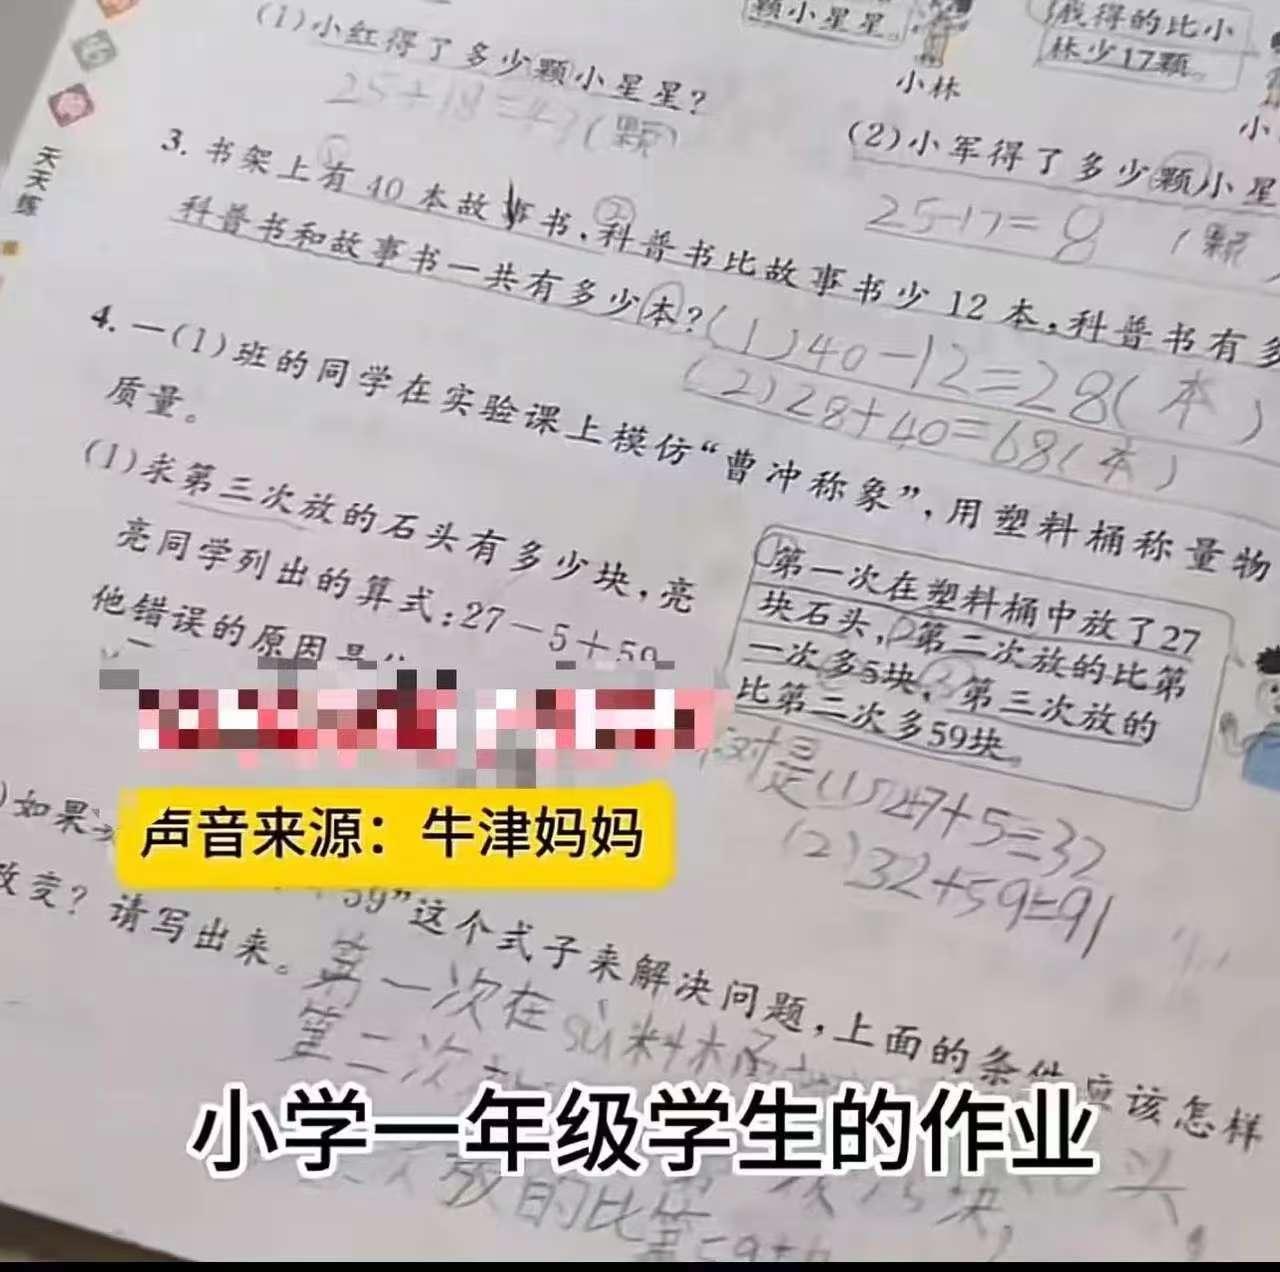 颗小星星。
小林
我得的比小
林少17颗。
小
(1)小红得了多少颗小星星?
25+18=43(颗)
(2)小军得了多少颗小星
25-17=8(颗
天天练
3. 书架上有40本故事书,科普书比故事书少12本,科普书有多
科普书和故事书一共有多少本?
(1)40-12=28(本)
(2)28+40=68(本)
4. 一(1)班的同学在实验课上模仿“曹冲称象”,用塑料桶称量物
质量。
(1)求第三次放的石头有多少块,亮
亮同学列出的算式:27-5+59
他错误的原因是
①第一次在塑料桶中放了27
块石头,②第二次放的比第
一次多5块,③第三次放的
比第二次多59块。
对是(1)27+5=32
(2)32+59=91
声音来源:牛津妈妈
)如果
59”这个式子来解决问题,上面的条件应该怎样
改变?请写出来。
第一次在sù料桶
第二次
小学一年级学生的作业
头,
放的比第
块,